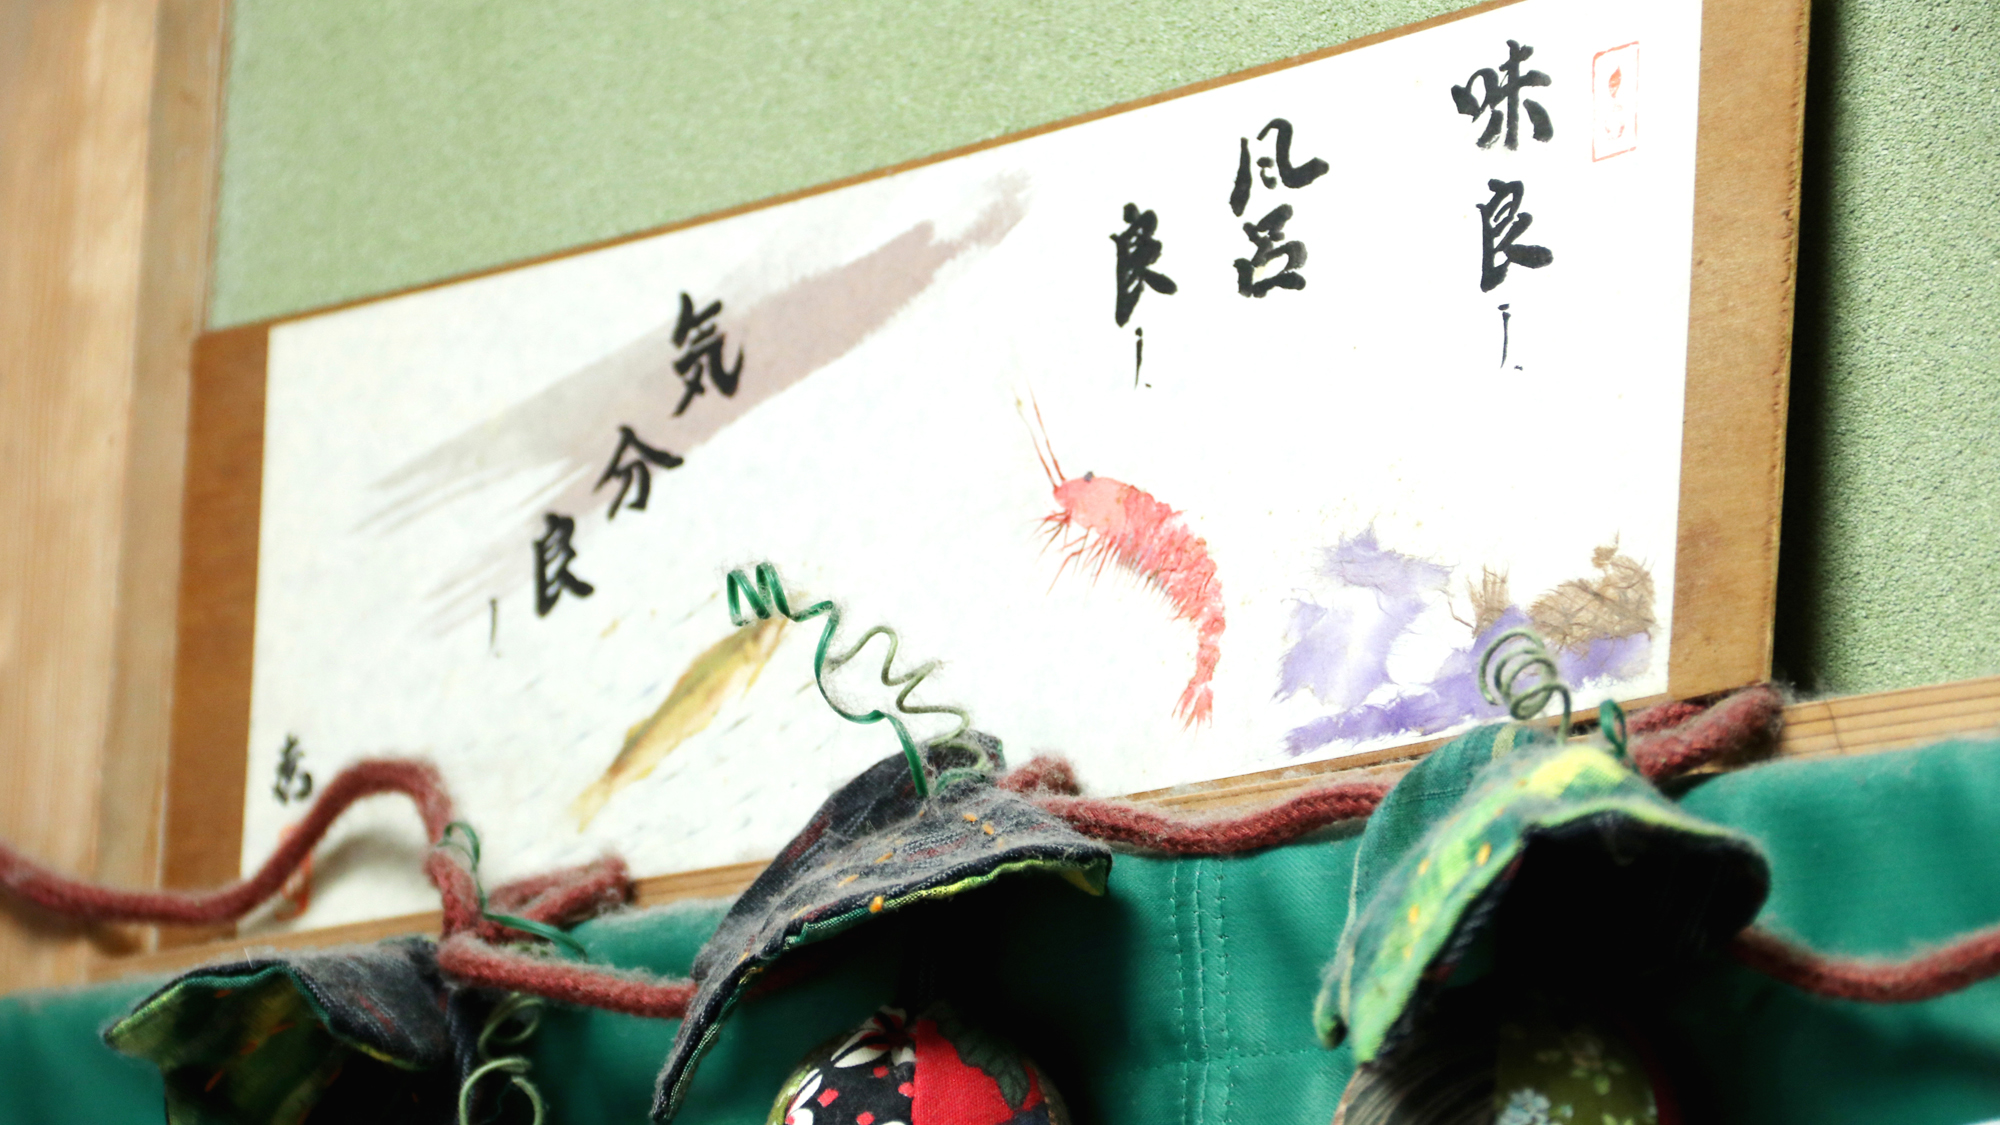 味良し
風呂
良し
気分
良し